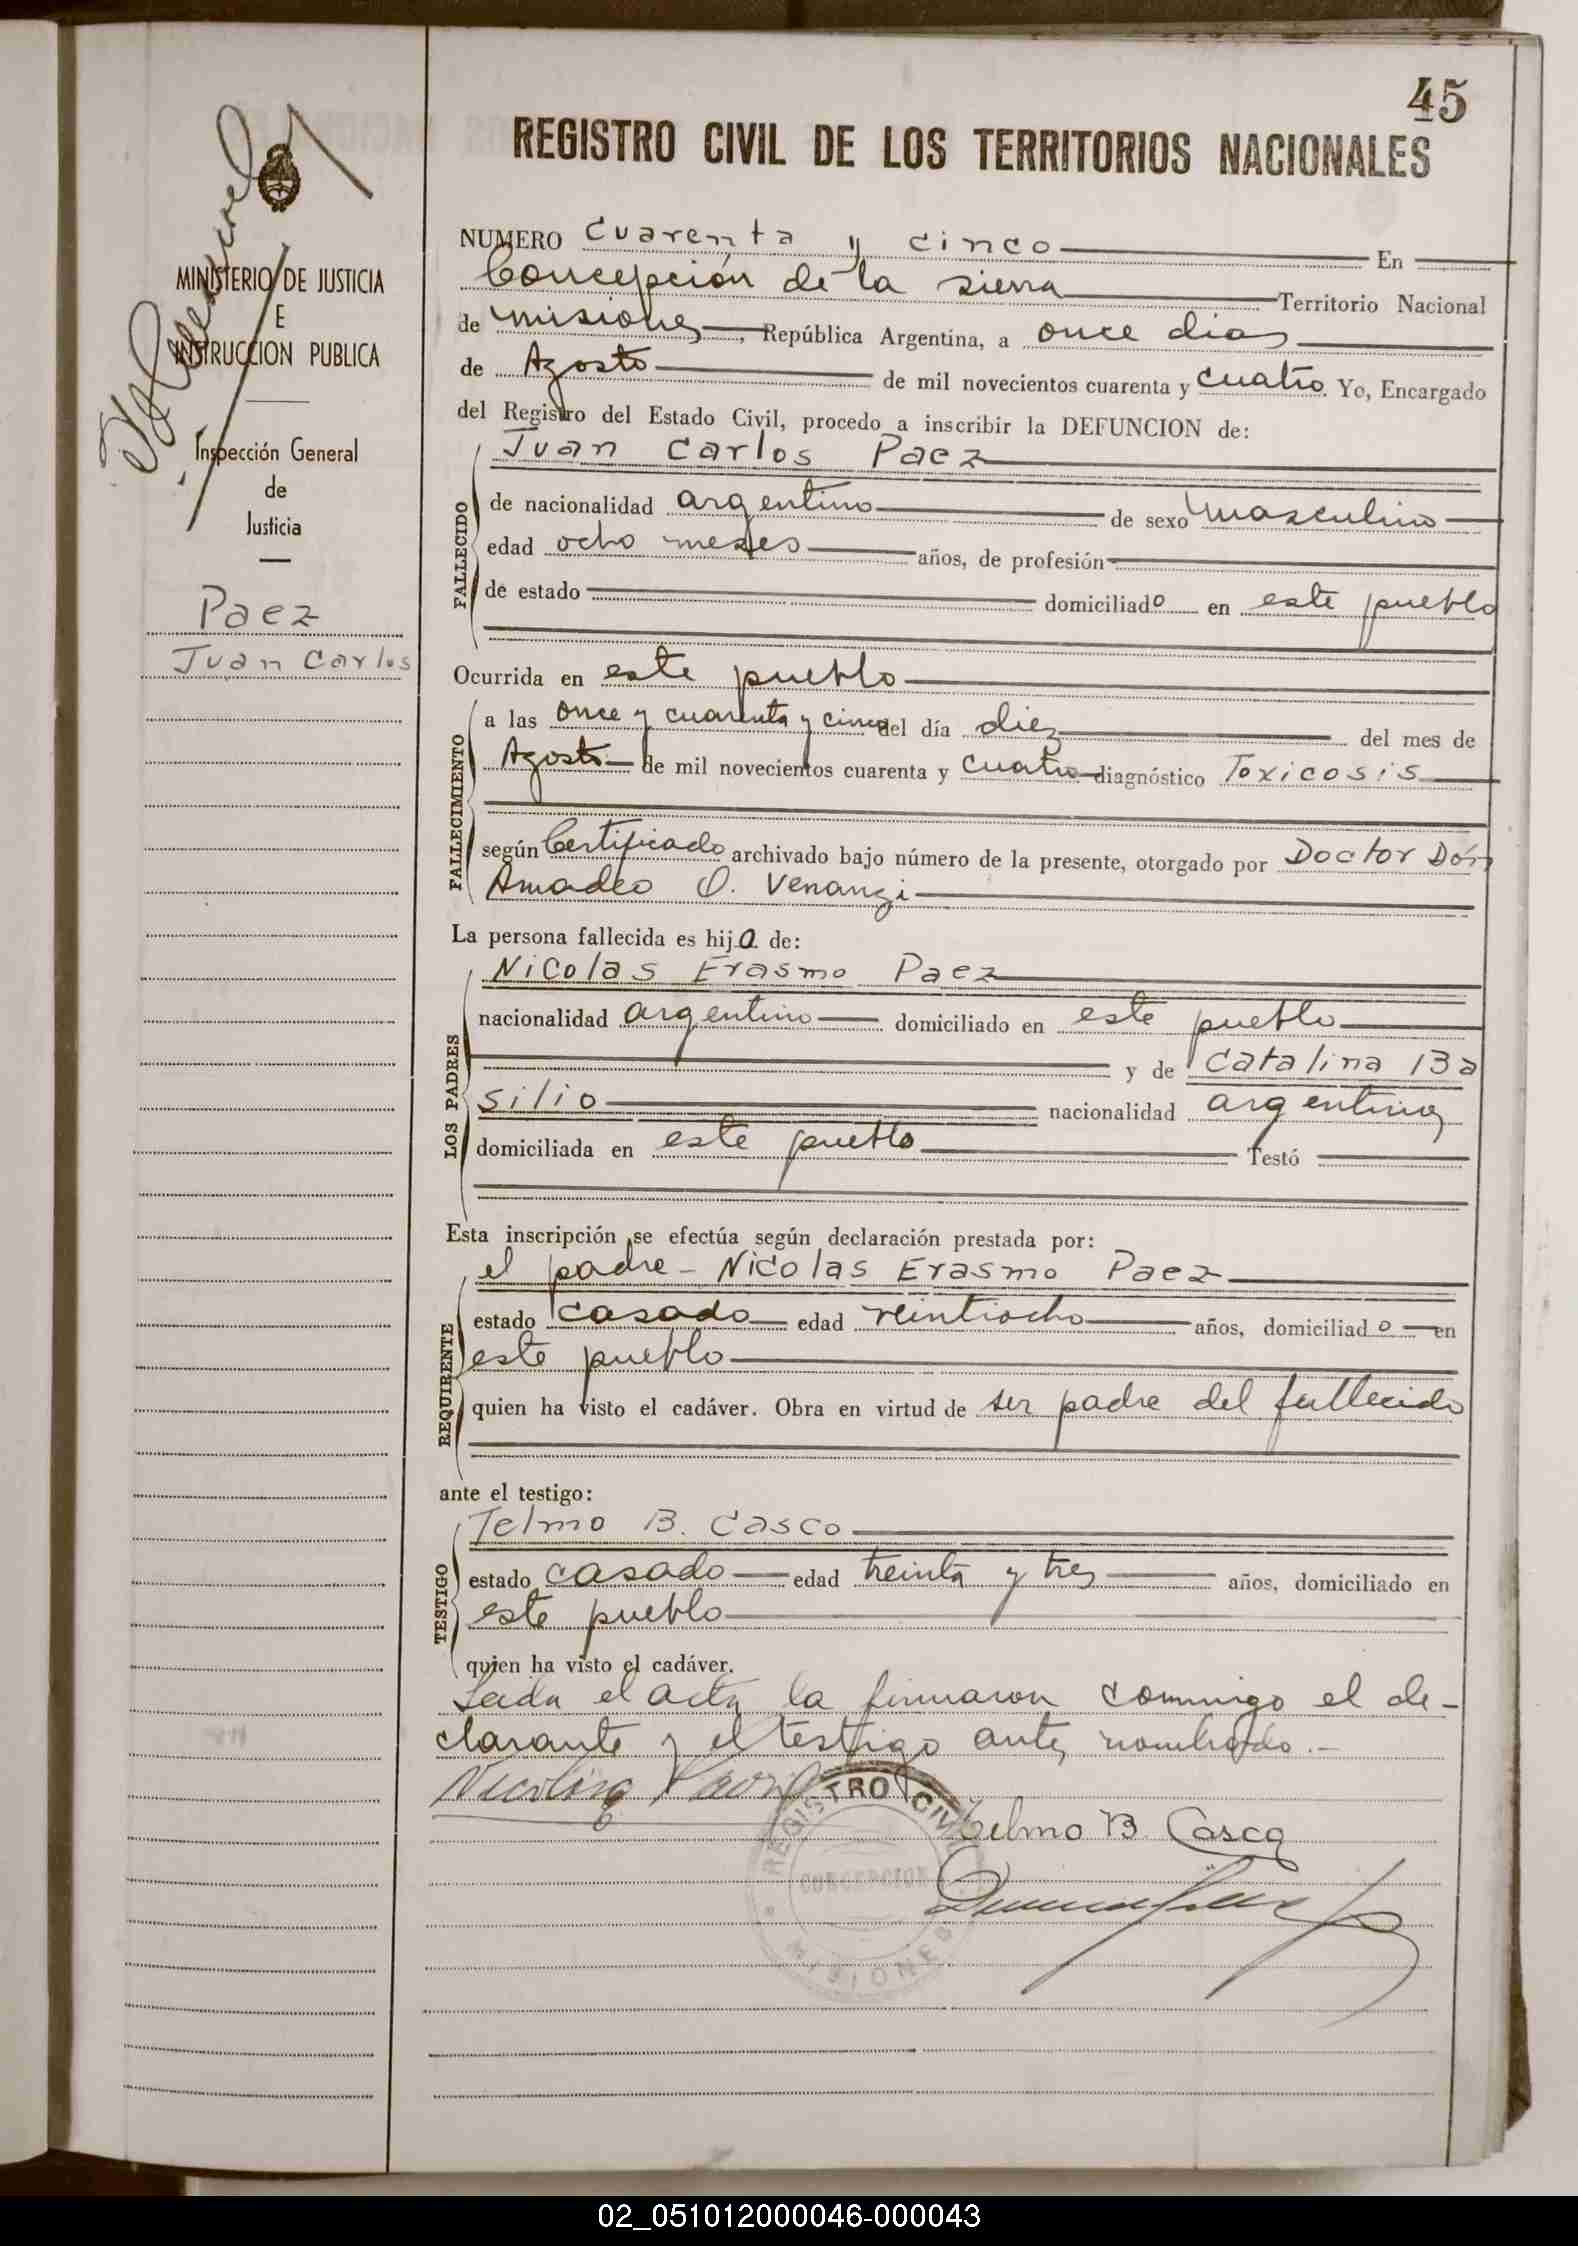 45
REGISTRO CIVIL DE LOS TERRITORIOS NACIONALES
MINISTERIO DE JUSTICIA
E
INSTRUCCION PUBLICA
Inspección General
de
Justicia
Paez
Juan Carlos
NUMERO cuarenta y cinco En
Concepción de la sierra Territorio Nacional
de misiones, República Argentina, a once dias
de Agosto de mil novecientos cuarenta y cuatro. Yo, Encargado
del Registro del Estado Civil, procedo a inscribir la DEFUNCION de:
Juan Carlos Paez
FALLECIDO
de nacionalidad argentino de sexo masculino
edad ocho meses años, de profesión
de estado domiciliado en este pueblo
Ocurrida en este pueblo
FALLECIMIENTO
a las once y cuarenta y cinco del día diez del mes de
Agosto de mil novecientos cuarenta y cuatro diagnóstico Toxicosis
según Certificado archivado bajo número de la presente, otorgado por Doctor Don
Amadeo O. Venanzi
La persona fallecida es hijo de:
LOS PADRES
Nicolas Erasmo Paez
nacionalidad argentino domiciliado en este pueblo
y de Catalina Ba
silio nacionalidad argentina
domiciliada en este pueblo Testó
Esta inscripción se efectúa según declaración prestada por:
REQUIRENTE
el padre - Nicolas Erasmo Paez
estado casado edad veintiocho años, domiciliado en
este pueblo
quien ha visto el cadáver. Obra en virtud de ser padre del fallecido
ante el testigo:
TESTIGO
Telmo B. Casco
estado casado edad treinta y tres años, domiciliado en
este pueblo
quien ha visto el cadáver.
Leida el acta la firmaron conmigo el de-
clarante y el testigo antes nombrado.-
REGISTRO CIVIL
CONCEPCION
MISIONES
Telmo B. Casco
02_051012000046-000043